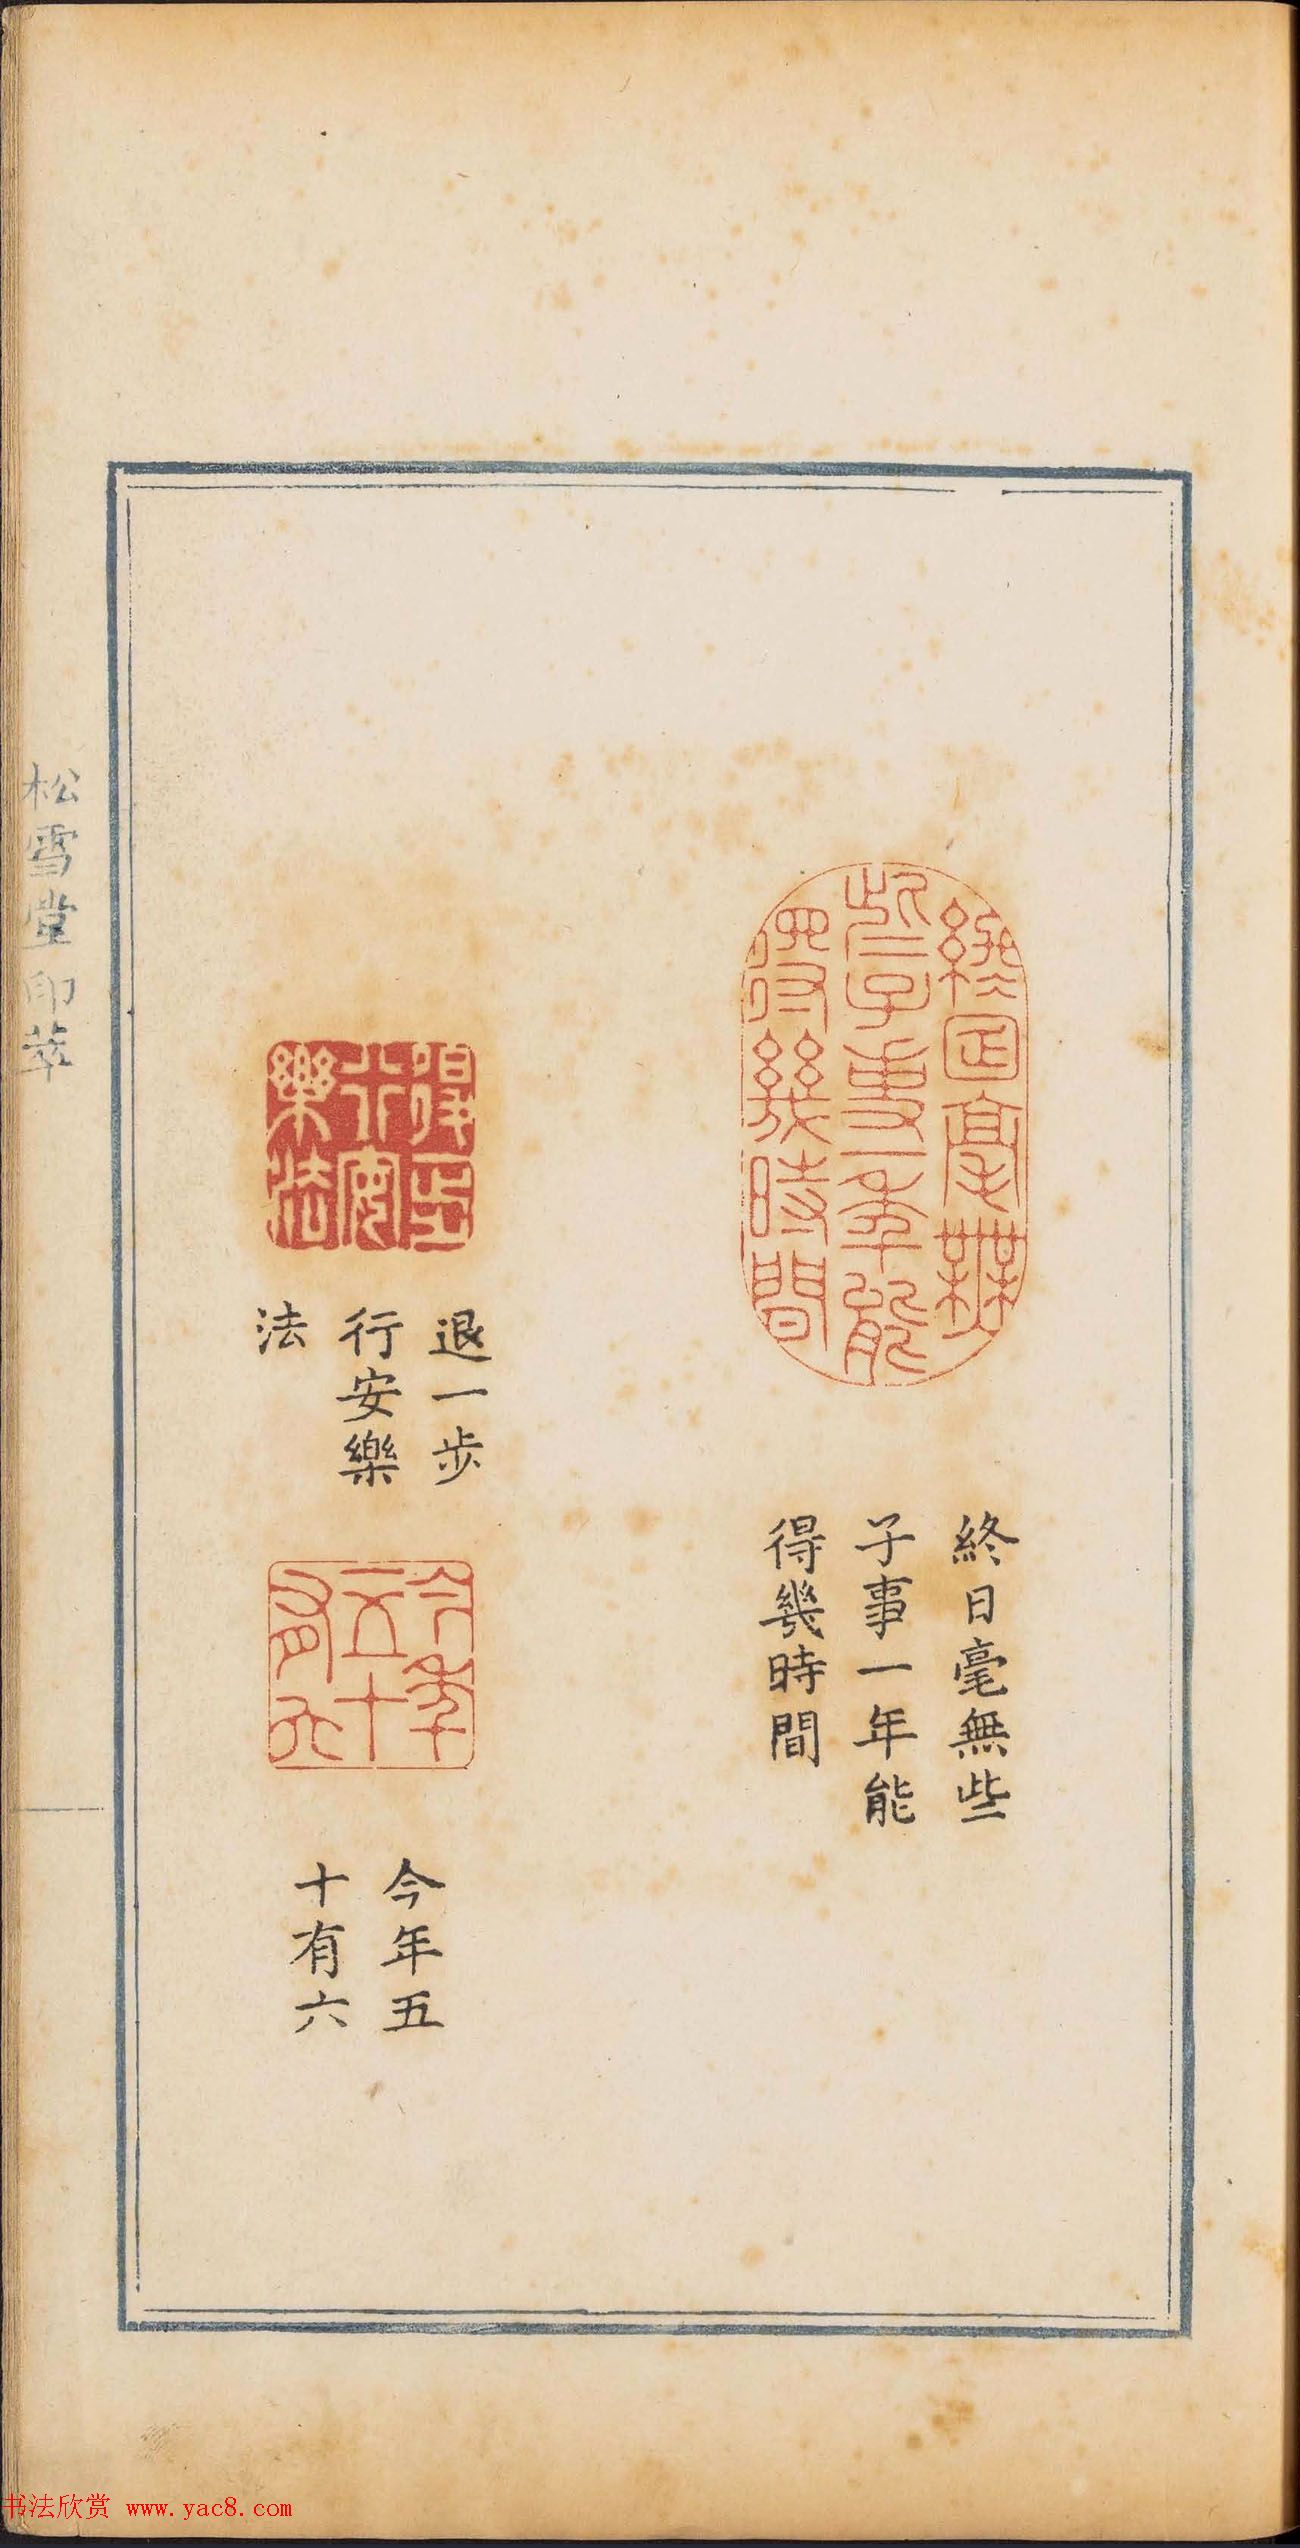 終日毫無些
子事一年能
得幾時間
終日毫無
些子事一年能
得幾時間
退一步
行安樂
法
退一步
行安
樂法
今年五
十有六
今年
五十
有六
松雪堂印萃
书法欣赏 www.yac8.com